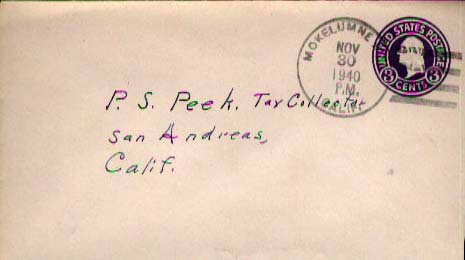 MOKELUMNE
NOV
30
1940
P.M.
CALIF.
UNITED STATES POSTAGE
3 CENTS 3
P. S. Peek, Tax Collector
San Andreas,
Calif.